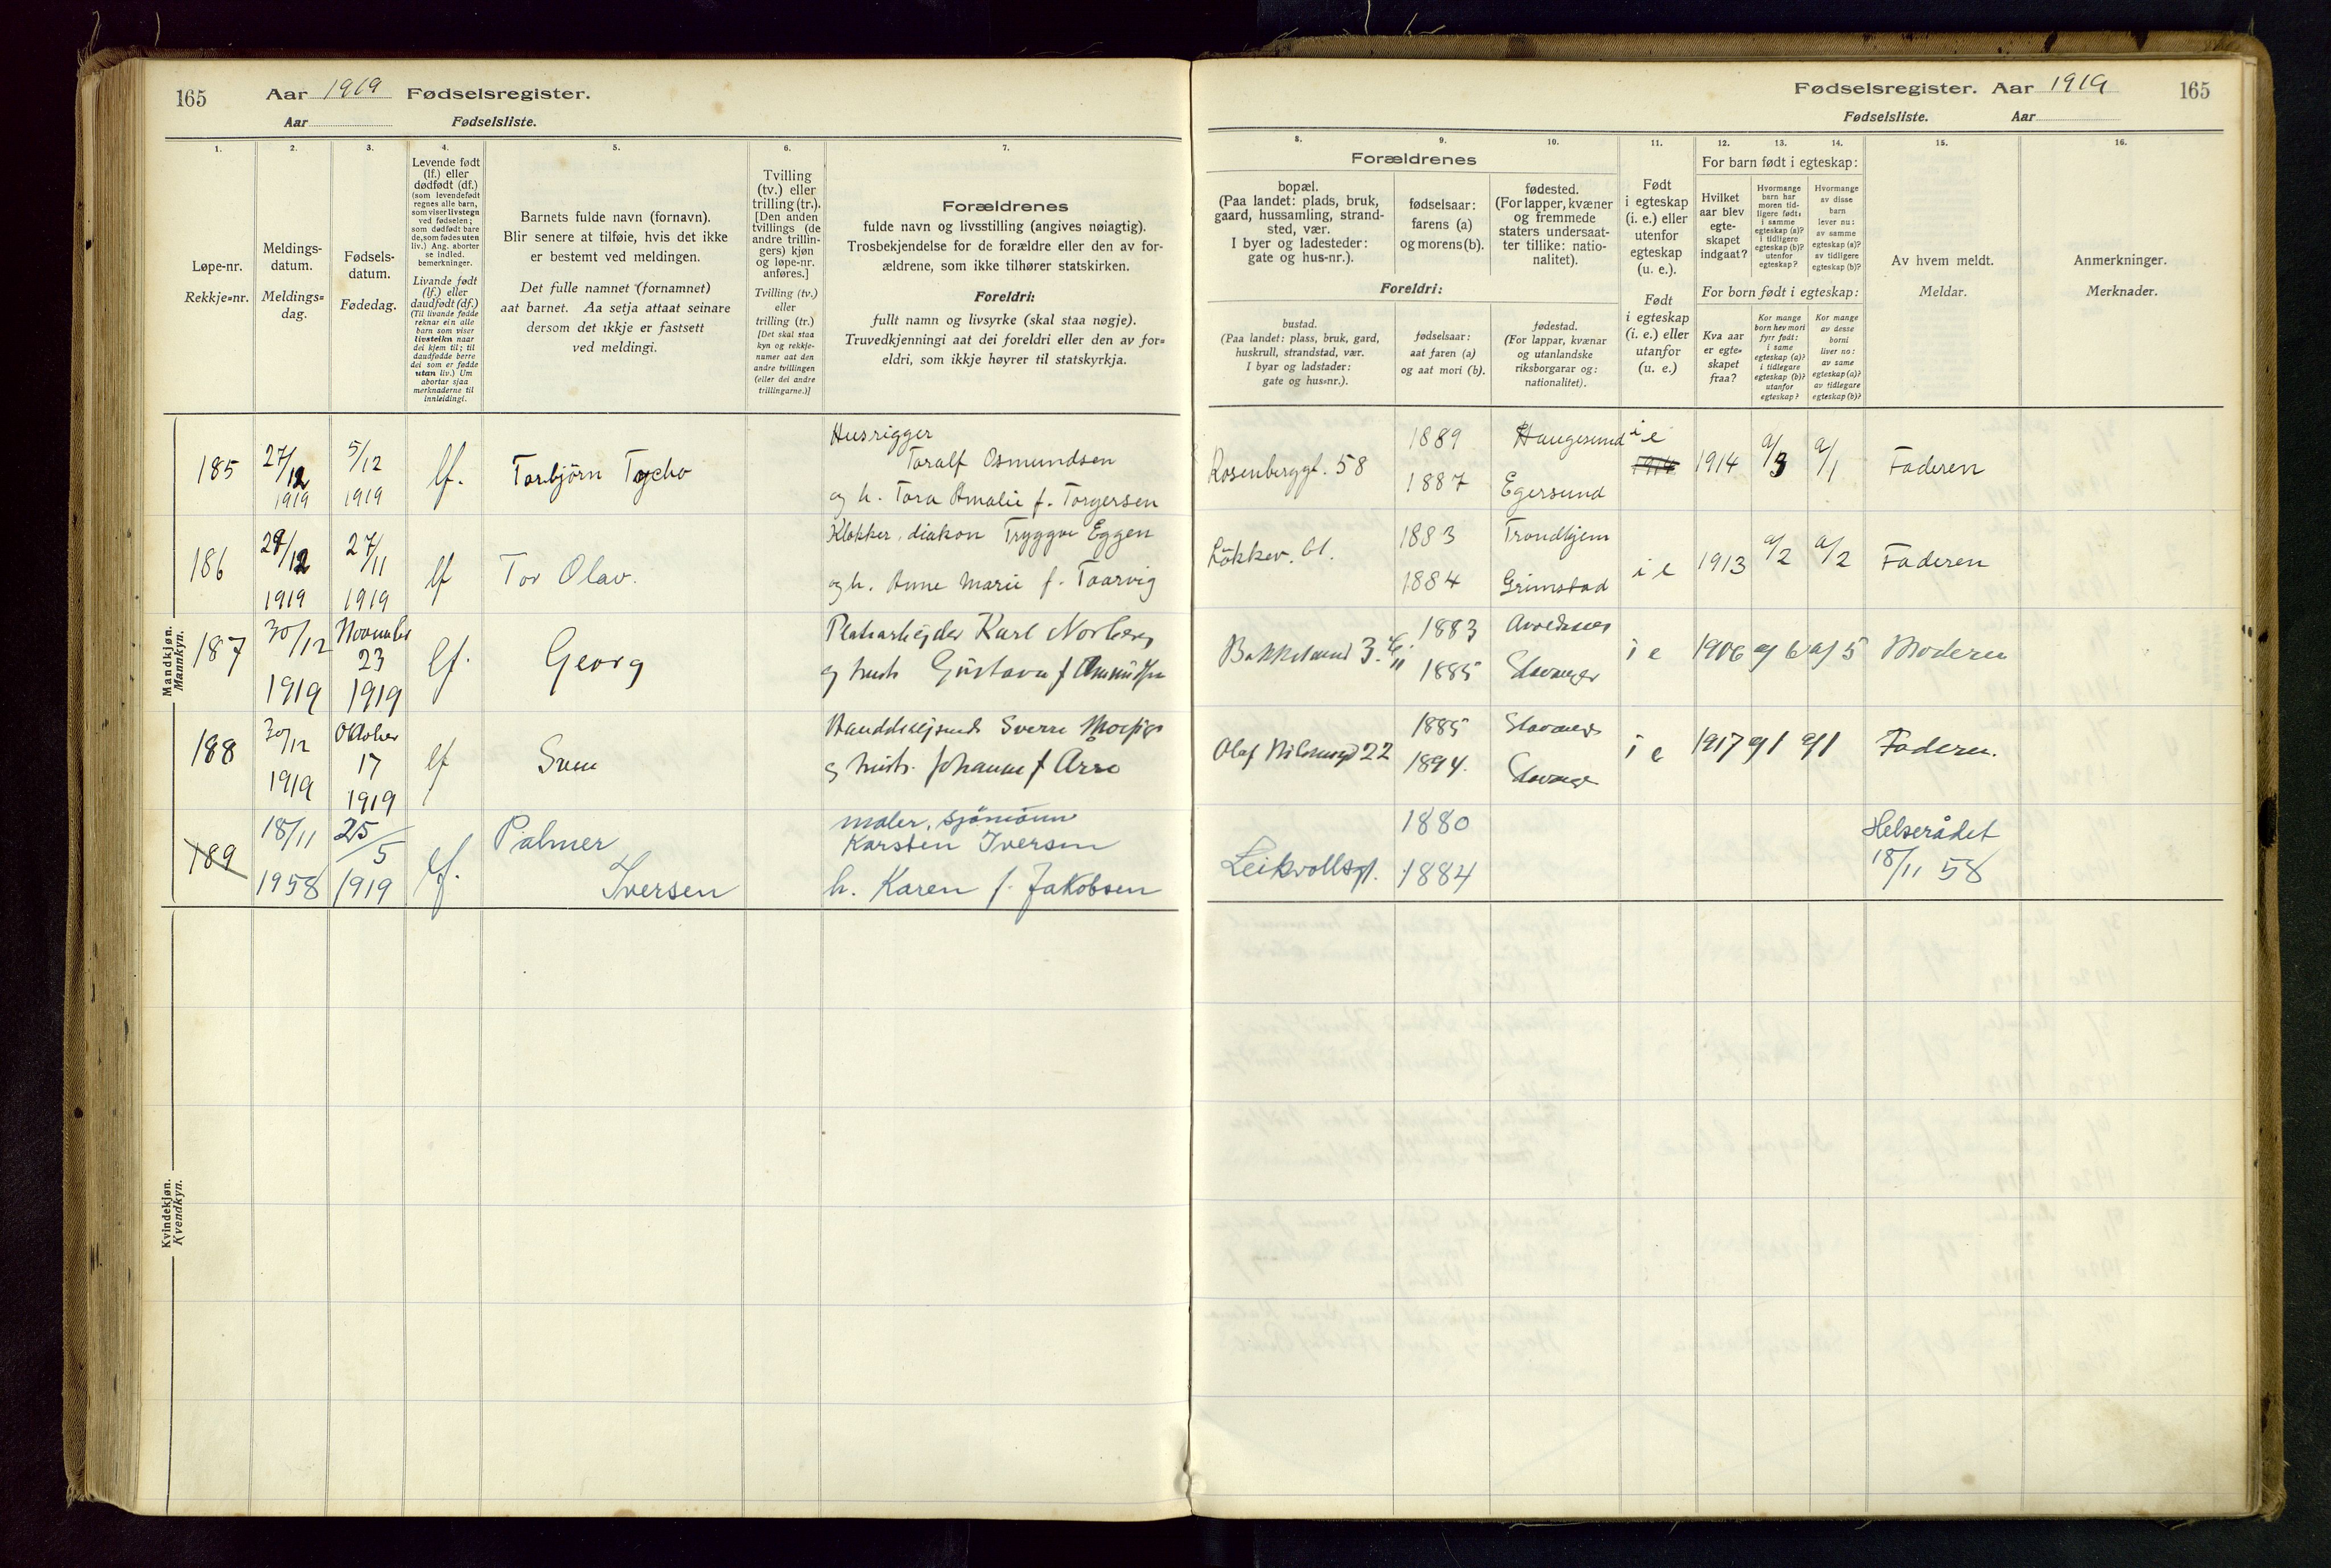 165 Aar 1919 Fødselsregister.
Aar Fødselsliste.
Fødselsregister. Aar 1919 165
Fødselsliste. Aar
1. 2. 3. 4. 5. 6. 7.
Løpe-nr.
Rekkje=nr.
Meldings-
datum.
Meldings=
dag.
Fødsels-
datum.
Fødedag.
Levende født
(lf.) eller
dødfødt (df.)
(som levendefødt
regnes alle barn,
som viser livstegn
ved fødselen;
som dødfødt bare
de, som fødes uten
liv.) Ang. aborter
se indled.
bemerkninger.
Livande født
(lf.) eller
daudfødt (df.)
(Til livande fødde
reknar ein alle
barn som viser
livsteikn naar
dei kjem til; til
daudfødde berre
dei som er fødde
utan liv.) Um
abortar sjaa
merknaderne til
innleidingi.
Barnets fulde navn (fornavn).
Blir senere at tilføie, hvis det ikke
er bestemt ved meldingen.
Det fulle namnet (fornamnet)
aat barnet. Aa setja attaat seinare
dersom det ikkje er fastsett
ved meldingi.
Tvilling
(tv.) eller
trilling (tr.).
[Den anden
tvillings (de
andre trillin-
gers) kjøn
og løpe-nr.
anføres.]
Tvilling (tv.)
eller
trilling (tr.)
[Det skal staa
kyn og rekkje-
numer aat den
andre tvillingen
(eller dei andre
trillingarne.)]
Forældrenes
fulde navn og livsstilling (angives nøiagtig).
Trosbekjendelse for de forældre eller den av for-
ældrene, som ikke tilhører statskirken.
Foreldri:
fullt namn og livsyrke (skal staa nøgje).
Truvedkjenningi aat dei foreldri eller den av for=
eldri, som ikkje høyrer til statskyrkja.
8. 9. 10. 11. 12. 13. 14. 15. 16.
Forældrenes
bopæl.
(Paa landet: plads, bruk,
gaard, hussamling, strand-
sted, vær.
I byer og ladesteder:
gate og hus-nr.).
fødselsaar:
farens (a)
og morens (b).
fødested.
(For lapper, kvæner
og fremmede
staters undersaat-
ter tillike: natio-
nalitet).
Foreldri:
bustad.
(Paa landet: plass, bruk, gard,
huskrull, strandstad, vær.
I byar og ladstader:
gate og hus=nr.).
fødselsaar:
aat faren (a)
og aat mori (b).
fødestad.
(For lappar, kvænar
og utanlandske
riksborgarar og:
nationalitet).
Født
i egteskap
(i. e.) eller
utenfor
egteskap
(u. e.).
Født
i egteskap
(i. e.) eller
utanfor
(u. e.)
For barn født i egteskap:
Hvilket
aar blev
egte-
skapet
indgaat?
Hvormange
barn har
moren tid-
ligere født:
i samme
egteskap (a)?
i tidligere
egteskap (b)?
utenfor
egteskap?
Hvormange
av disse
barn
lever nu:
av samme
egteskap (a)?
av tidligere
egteskap (b)?
For born født i egteskap:
Kva aar
er egte=
skapet
fraa?
Kor mange
born hev mori
fyrr født:
i same
egteskap (a)?
i tidlegare
egteskap (b)?
utanfor
egteskap?
Kor mange
av desse
borni
liver no:
av same
egteskap (a)?
av tidlegare
egteskap (b)?
Av hvem meldt.
Meldar.
Anmerkninger.
Merknader.
Mandkjøn.
Mannkyn.
185 27/12 1919 5/12 1919 lf. Torbjörn Tycho
Husrigger
Toralf Osmundsen
og h. Tora Amalie f. Torgersen
Rosenberggt. 58 1889 Haugesund i e
1887 Egersund 1914 1914 a/3 a/1 Faderen
186 29/12 1919 27/11 1919 lf Tor Olav.
Klokker, diakon Tryggve Eggen
og h. Anne Marie f. Taarvig
Lökkev. 61. 1883 Trondhjem
1884 Grimstad i e 1913 a/2 a/2 Faderen
187 30/12 1919 November 23 1919 lf. Georg
Karl Norberg
og hustr. Gustava f
1883
1885 Stavanger i e 1906 a/6 a/5 Moderen
188 30/12 1919 Oktober 17 1919 lf
Sverre
og hustr. Johanne f
22 1885 Stavanger
1894. Stavanger i e 1917 a/1 a/1 Faderen.
189 18/11 1958 25/5 1919 lf. Palmer
Iversen
maler, sjömann
Karsten Iversen
h. Karen f. Jakobsen
Leikvollsgt. 1880
1884
Helserådet
18/11 58
Kvindekjøn.
Kvendkyn.